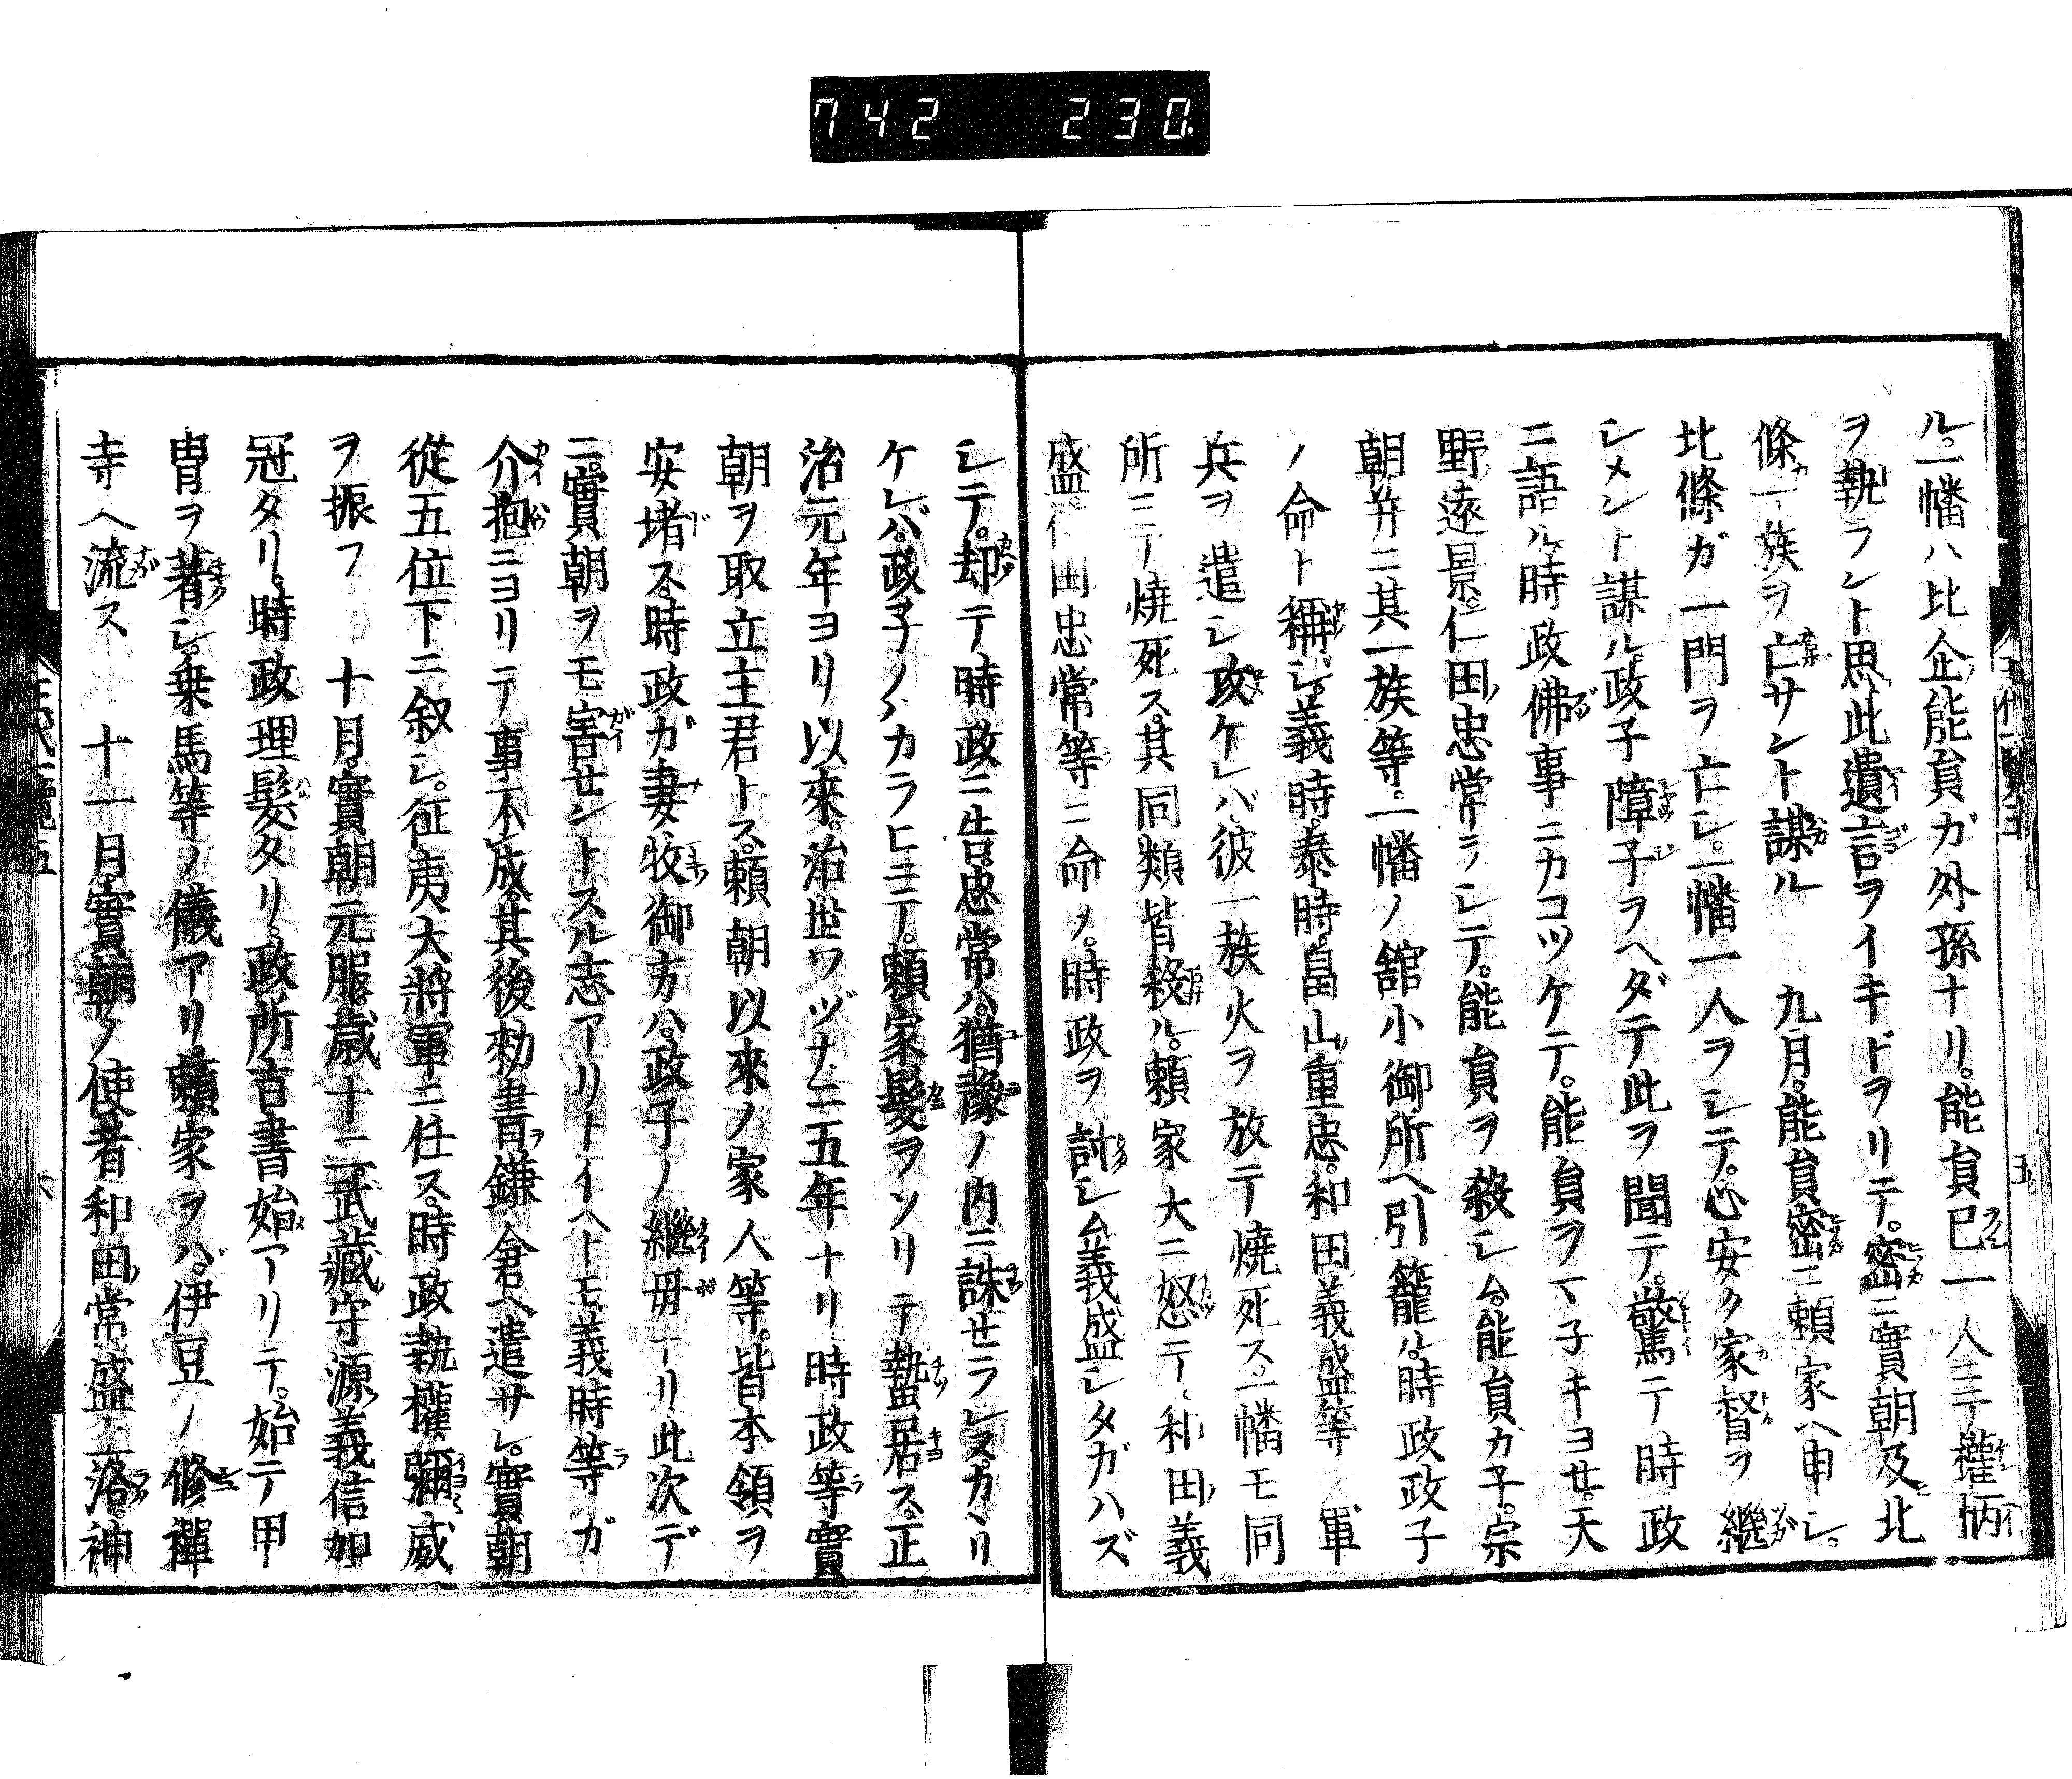 742 230
ル。一幡ハ比企能員ガ外孫ナリ。能員已一人ニテ權柄
ヲ執ラント思、此遺言ヲイキドヲリテ。密ニ實朝及ヒ北
條カ一族ヲ亡サント謀ル 九月。能員密ニ賴家ヘ申シ。
北條ガ一門ヲ亡シ。一幡一人ヲシテ。心安ク家督ヲ繼
シメント謀ル。政子障子ヲヘダテ此ヲ聞テ。驚テ時政
ニ語ル。時政佛事ニカコツケテ。能員ヲマ子キヨせ。天
野遠景。仁田忠常ヲシテ。能員ヲ殺シム。能員カ子。宗
朝并ニ其一族等。一幡ノ舘小御所ヘ引籠ル。時政政子
ノ命ト稱シ。義時。泰時。畠山重忠。和田義盛等 軍
兵ヲ遣シ攻ケレバ彼一族火ヲ放テ燒死ス。一幡モ同
所ニテ燒死ス。其同類皆殺ル。賴家大ニ怒テ、和田義
盛。仁田忠常等ニ命ノ。時政ヲ討シム。義盛シタガハズ
シテ。却テ時政ニ告。忠常ハ。猶豫ノ内ニ誅せラレヌ。カヽリ
ケレバ。政子ノハカラヒニテ。賴家髮ヲソリテ蟄居ス。正
治元年ヨリ以來。治世ワヅカニ五年ナリ 時政等實
朝ヲ取立主君トス。賴朝以來ノ家人等。皆本領ヲ
安堵ス。時政ガ妻牧御方ハ。政子ノ繼毋ナリ此次デ
ニ。實朝ヲモ害せントスル志アリトイヘトモ義時等ガ
介抱ニヨリテ事不成。其後勑書ヲ鎌倉ヘ遣サレ。實朝
從五位下ニ叙シ。征夷大將軍ニ任ス。時政執權。彌威
ヲ振フ 十月。實朝元服。歲十二武藏守源義信加
冠タリ。時政理髮タリ。政所吉書始アリテ。始テ甲
冑ヲ著シ。乗馬等ノ儀アリ。賴家ヲバ。伊豆ノ修禪
寺ヘ流ス 十一月。實朝ノ使者和田常盛上落。神